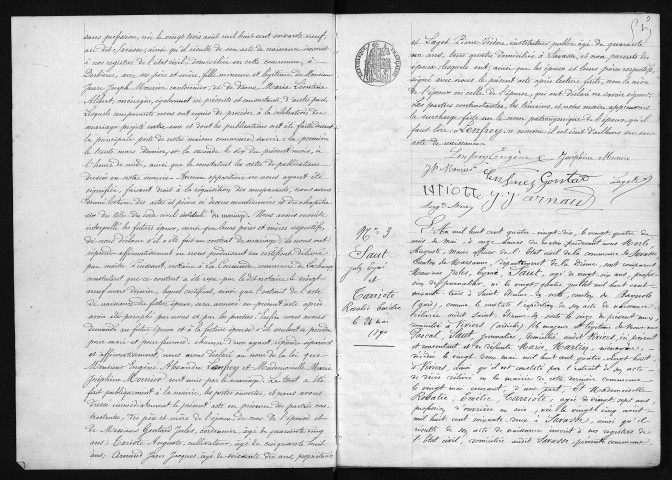 sans profession, née le vingt trois août mil huit cent soixante neuf,
au dit Savasse, ainsi qu'il résulte de son acte de naissance inscrit
à nos registres de l'état civil, domiciliée en cette commune, à
avec ses père et mère, fille mineure et légitime de Monsieur
Jean Joseph Mounier cantonnier, et de dame Marie Léontine
Albert, ménagère, également ici présents et consentants, d'autre part.
Lesquels comparants nous ont requis de procéder à la célébration du
mariage projeté entre eux et dont les publications ont été faites devant
la principale porte de notre maison commune, savoir: la première
le trente mars dernier, et la seconde le six du présent mois, à
l'heure de midi, ainsi que le constatent les actes de publications
dressés en notre mairie. Aucune opposition ne nous ayant été
signifiée, faisant droit à la réquisition des comparants, nous avons
donné lecture des actes et pièces ci dessus mentionnés et du chapitre
six du titre du code civil intitulé du mariage. Nous avons ensuite
interpellé les futurs époux, ainsi que leurs pères et mères respectifs,
de nous déclarer s'il a été fait un contrat de mariage: ils nous ont
répondu affirmativement en nous produisant un certificat délivré
par maître notaire à
constatant que ce contrat a été reçu par le dit notaire, le vingt
neuf mars dernier, lequel certificat, ainsi que l'extrait de l'acte
de naissance du futur époux, sera annexé au présent acte après
avoir été paraphé par nous et par les parties. Enfin nous avons
demandé au futur époux et à la future épouse s'ils veulent se prendre
pour mari et pour femme: chacun d'eux ayant répondu séparément
et affirmativement, nous avons déclaré au nom de la loi que
Monsieur Eugène Alexandre Lanfrey et Mademoiselle Marie
Joséphine Mounier sont unis par le mariage. Le tout a été
fait publiquement à la mairie, les portes ouvertes, et nous avons
dressé immédiatement le présent acte en présence des parties con-
tractantes, des père et mère de l'époux, de ceux de l'épouse et
de Messieurs Gontard Jules, cordonnier, âgé de quarante cinq
ans; Tariote Auguste, cultivateur, âgé de cinquante huit
ans; Arnaud Jean Jacques, âgé de soixante dix ans, propriétaire
et Laget Pierre Isidore instituteur public âgé de quarante
un ans, tous quatre domiciliés à Savasse, et non parents des
époux. Lesquels ont, ainsi que les époux et leurs pères respectifs,
signé avec nous le présent acte après lecture faite, non la mère
de l'époux ni celle de l'épouse, qui ont déclaré ne savoir signer.
Les parties contractantes, les témoins, et nous maire approuvons
la surcharge faite sur le nom patronymique de l'époux, qu'il
faut lire: Lanfrey, comme il est écrit d'ailleurs sur son
acte de naissance.
Lanfrey Eugène Joséphine Mounier
Jh Mounier Lanfrey Gontard Laget
TARIOTTE J J Arnaud
No 3
Saut
Jules Cyprien
et
Tarriote
Rosalie Emélie
le 24 mai
1890
L'An mil huit cent quatre-vingt-dix, le vingt quatre du
mois de mai, à onze heures du matin pardevant nous Morts
Auguste, Maire officier de l'Etat civil de la commune de Savasse
Canton de Montélimar, département de la Drôme, sont comparus
Monsieur Jules, Cyprien Saut, âgé de vingt six ans, profes-
sion de journalier, né le vingt quatre juillet mil huit cent
soixante trois à Saint Etienne des sorts, canton de Bagnols
(Gard), comme le constate l'expédition de son acte de naissance
délivrée audit Saint Etienne des sorts le seize du présent mois,
domicilié à Viviers (Ardèche), fils majeur et légitime de Monsieur
Pascal, Saut, journalier, domicilié audit Viviers, ici présent
et consentant et de défunte Marie, ménagère,
décédée le vingt deux mai mil huit cent quatre vingt huit
à Viviers, ainsi qu'il est constaté par l'extrait de son acte
de décès délivré en la mairie de cette dernière commune
le vingt mai courant, d'une part. Et Mademoiselle
Rosalie Emélie Tarriote, âgée de vingt sept ans,
profession d'ouvrière en soie, née le vingt cinq avril
mil huit cent soixante deux à Savasse, ainsi qu'il
résulte de son acte de naissance inscrit à nos registres de
l'Etat civil, domiciliée audit Savasse, présente commune